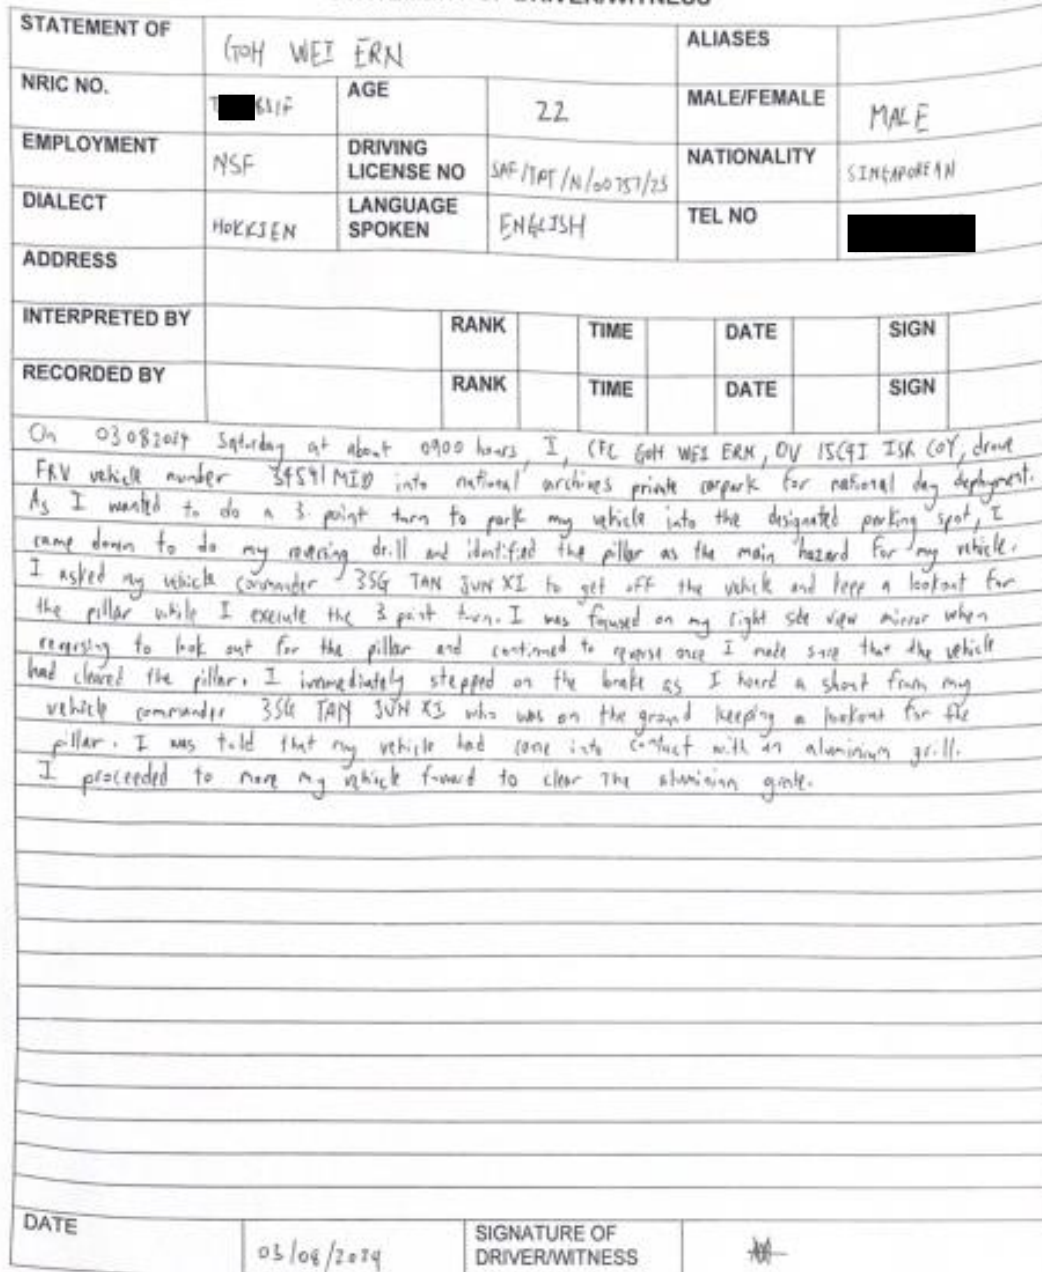 OF DRIVER/WITNESS
STATEMENT OF GOH WEI ERN ALIASES
NRIC NO. AGE 22 MALE/FEMALE MALE
EMPLOYMENT NSF DRIVING LICENSE NO SAF/TPT/N/00757/23 NATIONALITY SINGAPOREAN
DIALECT HOKKIEN LANGUAGE SPOKEN ENGLISH TEL NO
ADDRESS
INTERPRETED BY RANK TIME DATE SIGN
RECORDED BY RANK TIME DATE SIGN
On 03082024 Saturday at about 0900 hours, I, CFC GOH WEI ERN, OV ISC4I ISR COY, drove
FRV vehicle number 34541 MID into national archives private carpark for national day deployment.
As I wanted to do a 3 point turn to park my vehicle into the designated parking spot, I
came down to do my reversing drill and identified the pillar as the main hazard for my vehicle.
I asked my vehicle commander 3SG TAN JUN XI to get off the vehicle and keep a lookout for
the pillar while I execute the 3 point turn. I was focused on my right side view mirror when
reversing to look out for the pillar and continued to reverse once I made sure that the vehicle
had cleared the pillar. I immediately stepped on the brake as I heard a shout from my
vehicle commander 3SG TAN JUN XI who was on the ground keeping a lookout for the
pillar. I was told that my vehicle had come into contact with an aluminium grill.
I proceeded to move my vehicle forward to clear the aluminium
DATE 03/08/2024 SIGNATURE OF DRIVER/WITNESS